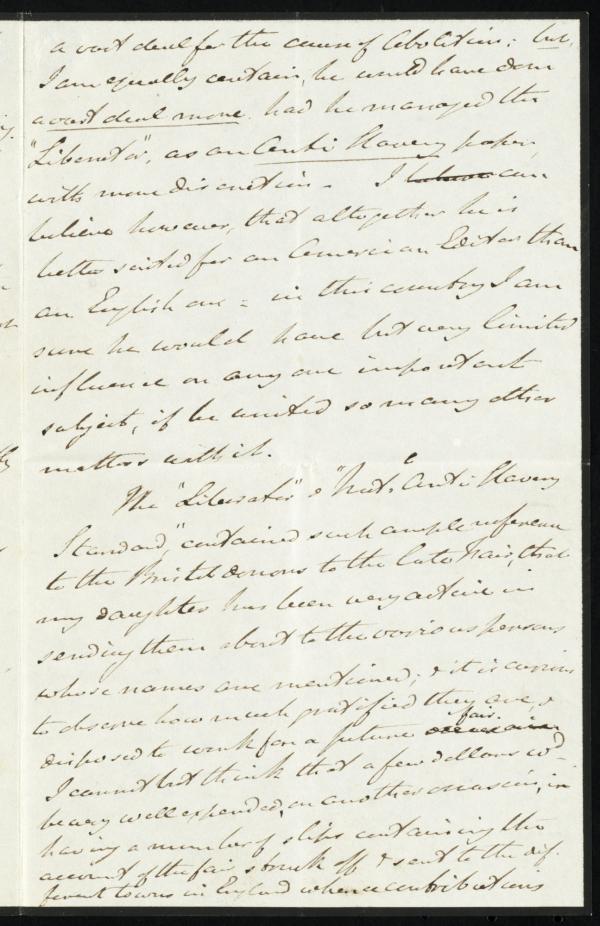 a vast deal for the cause of Abolition; but,
I am equally certain, he would have done
a vast deal more had he managed the
"Liberator", as an Anti Slavery paper,
with more discretion - I can
believe however, that altogether he is
better suited for an American Editor than
an English one = in this country I am
sure he would have but very limited
influence on any one important
subject, if he united so many other
matters with it.
The "Liberator" & "Nat. Anti Slavery
Standard," contained such ample reference
to the Bristol donors to the late Fair, that
my daughter has been very active in
sending them about to the various persons
whose names are mentioned; & it is curious
to observe how much gratified they are, &
disposed to work for a future fair.
I cannot but think that a few dollars wd.
be very well expended, on another occasion, in
having a number of slips containing the
account of the fair struck off & sent to the dif-
ferent towns in England whence contributions